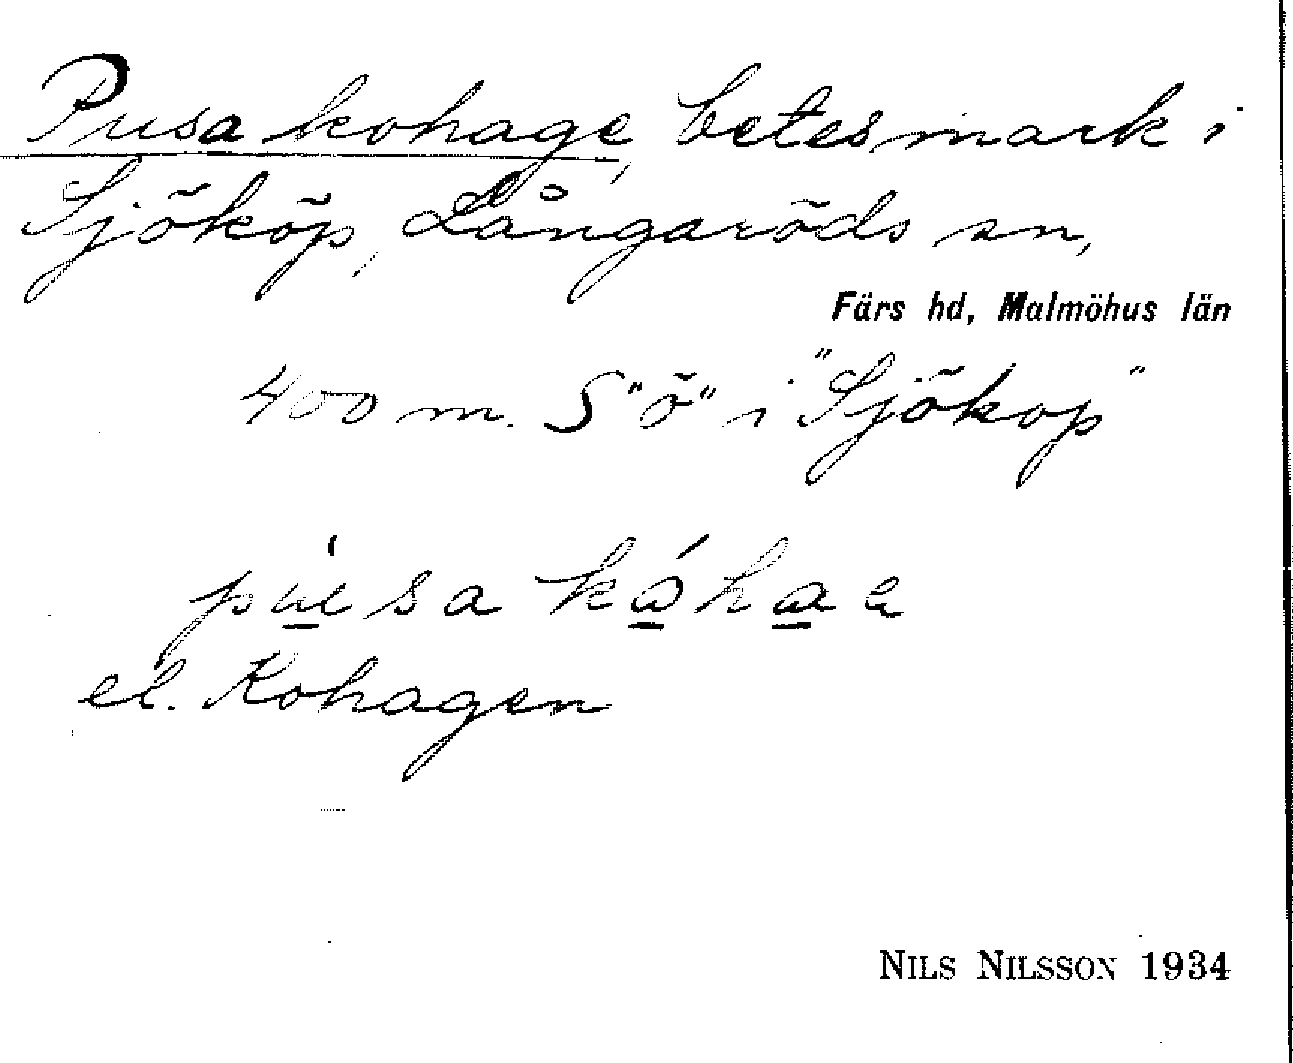 Pusa kohage, betesmark i
Sjököp, Långaröds sn,
Färs hd, Malmöhus län
400 m. S "ö" i "Sjökop"
pu̲´sa kå̲´ha̲a
el. Kohagen
NILS NILSSON 1934